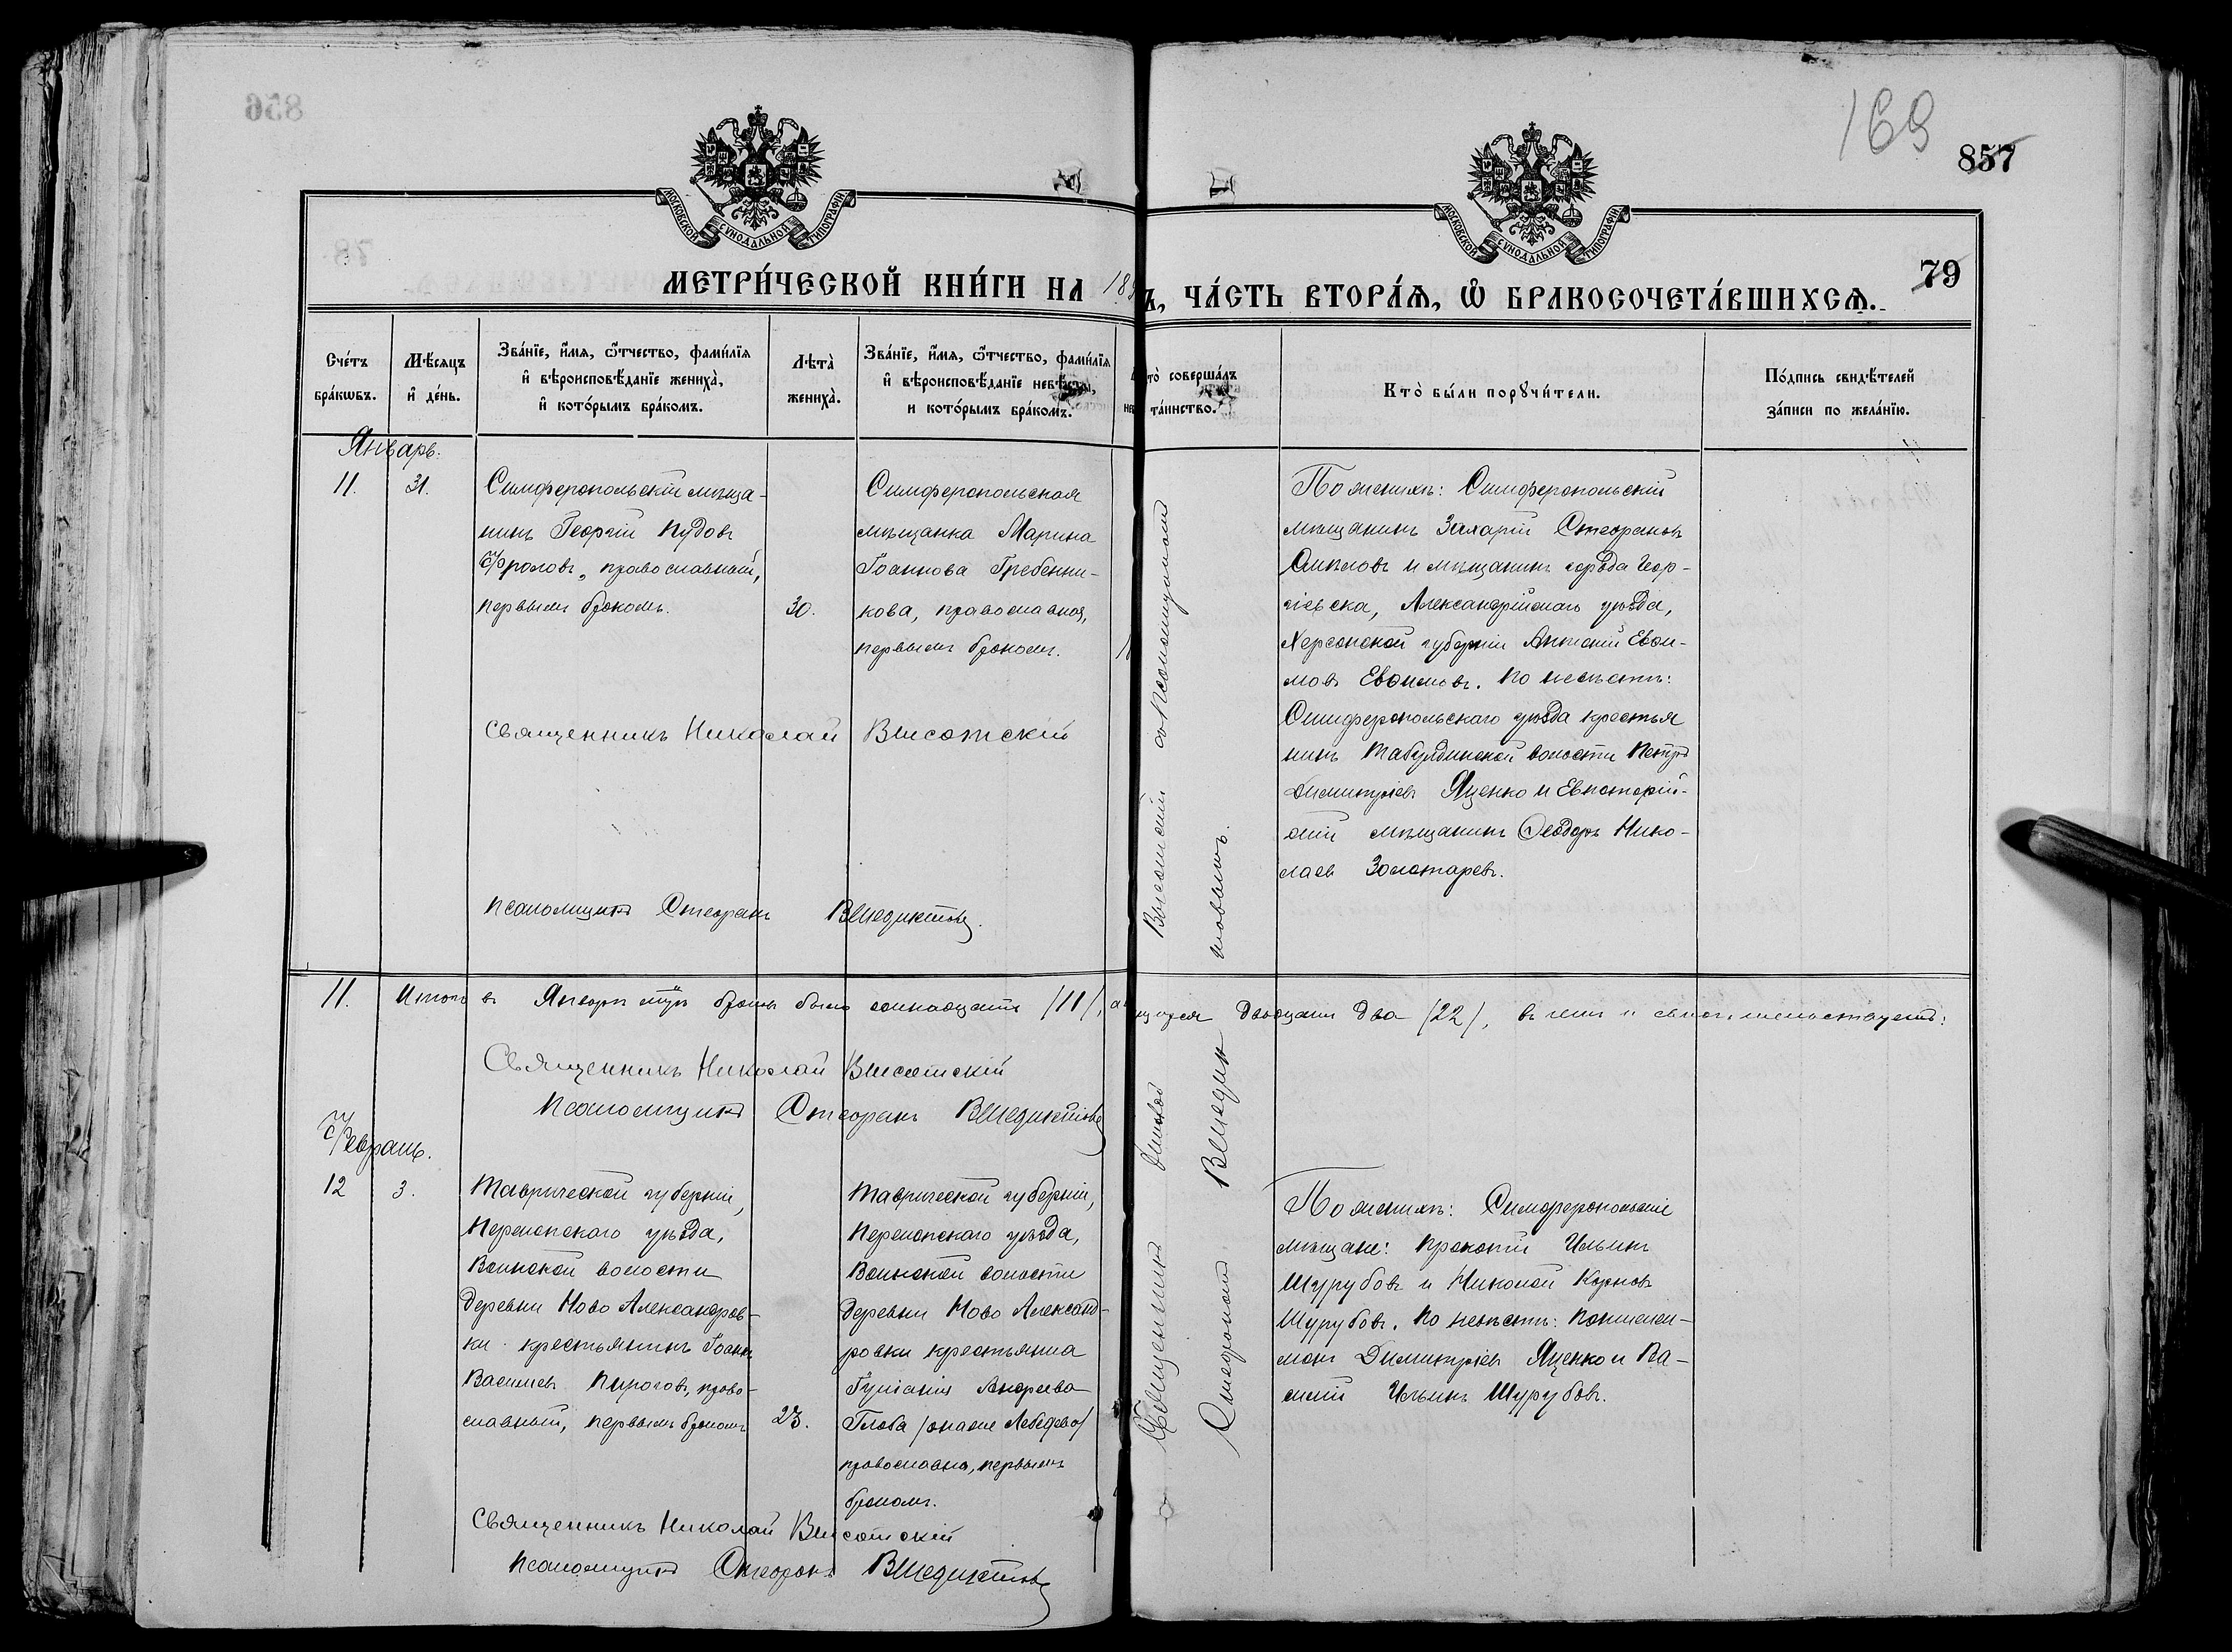 856
169
857
МОСКОВСКОЙ СѴНОДАЛЬНОЙ ТИПОГРАФІИ
МОСКОВСКОЙ СѴНОДАЛЬНОЙ ТИПОГРАФІИ
78
79
МЕТРИ́ЧЕСКОЙ КНИ́ГИ НА 18
Ъ, ЧА́СТЬ ВТОРА́Ѧ, Ѡ҆ БРАКОСОЧЕТА́ВШИХСѦ.
Сче́тъ бра́кѡвъ.
Мѣ́сяцъ и҆ де́нь.
Зва́нїе, и҆́мѧ, ѻ҆́тчество, фами́лїѧ
и҆ вѣроисповѣ́данїе жениха̀,
и҆ кото́рымъ бра́комъ.
Лѣта̀ жениха̀.
Зва́нїе, и҆́мѧ, ѻ҆́тчество, фами́лїѧ
и҆ вѣроисповѣ́данїе невѣ́сты,
и кото́рымъ бра́комъ.
то̀ соверша́лъ
та́инство.
Кто̀ бы́ли порꙋчи́тели.
По́дпись свидѣ́телей
за́писи по жела́нїю.
Январь.
11.
31.
Симферопольскій мѣща-
нинъ Георгій Пудовъ
Фроловъ, православный,
первымъ бракомъ.
30.
Симферопольская
мѣщанка Марина
Іоаннова Гребенни-
кова, православная,
первымъ бракомъ.
Священникъ Николай Высотскій
Псаломщикъ Стефанъ Венедиктовъ
По женихѣ: Симферопольскій
мѣщанинъ Захарій Стефановъ
и мѣщанинъ города Геор-
гіевска, Александрійскаго уѣзда,
Херсонской губерніи Евѳи-
мовъ Евѳимовъ. По невѣстѣ:
Симферопольскаго уѣзда крестья
нинъ Табулдинской волости Петръ
Димитріевъ Яценко и Евпаторій-
скій мѣщанинъ Ѳеодоръ Нико-
лаевъ Золотаревъ.
11. Итого въ Январѣ м-цѣ браковъ было одинадцать /11/, а
щихся двадцать два /22/, въ чемъ и свидѣтельствуемъ:
Священникъ Николай Высотскій
Псаломщикъ Стефанъ Венедиктовъ
Февраль.
12
3.
Таврической губерніи,
Перекопскаго уѣзда,
Воинской волости
деревни Ново Александров-
ки крестьянинъ Іоаннъ
Васильевъ Пироговъ, право-
славный, первымъ бракомъ
23.
Таврической губерніи,
Перекопскаго уѣзда,
Воинской волости
деревни Ново Александ-
ровки крестьянка
Іуліанія Андреева
Глоба /она же Лебедева/
православна, первымъ
бракомъ.
Священникъ Николай Высотскій
Псаломщикъ Стефанъ Венедиктовъ
Священникъ Высотскій съ псаломщикомъ
Стефаномъ Венедик товымъ.
По женихѣ: Симферопольскіе
мѣщане: Прокопій Ильинъ
Шурубовъ и Николай Карповъ
Шурубовъ. По невѣстѣ: Пантелей-
монъ Димитріевъ Яценко и Ва-
силій Ильинъ Шурубовъ.